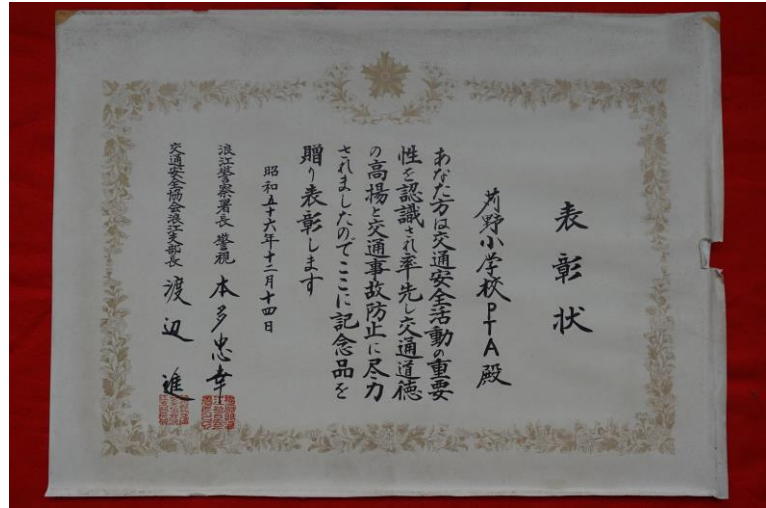 表彰状
苅野小学校PTA殿
あなた方は交通安全活動の重要
性を認識され率先し交通道徳
の高揚と交通事故防止に尽力
されましたのでここに記念品を
贈り表彰します
昭和五十六年十二月十四日
浪江警察署長 警視 本多忠幸
交通安全協会浪江支部長 渡辺 進